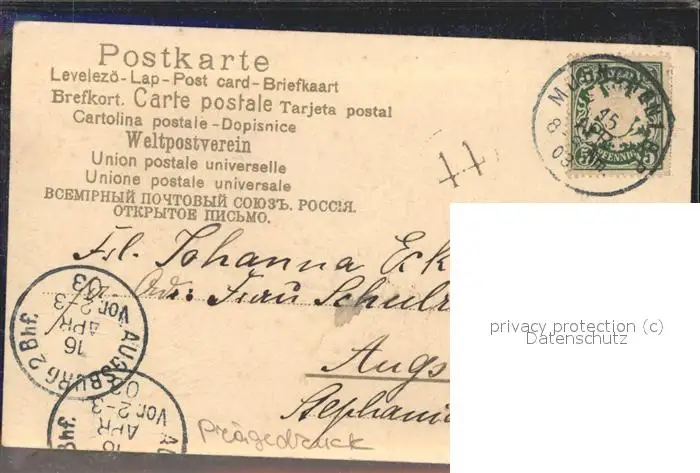 Postkarte
Levelezö-Lap-Post card-Briefkaart
Brefkort. Carte postale Tarjeta postal
Cartolina postale-Dopisnice
Weltpostverein
Union postale universelle
Unione postale universale
ВСЕМІРНЫЙ ПОЧТОВЫЙ СОЮЗЪ. РОССІЯ.
ОТКРЫТОЕ ПИСЬМО.
15
APR
03
5 PFENNIG 5
Frl. Johanna Eck
Frau Schulr
Augs
Stephani
AUGSBURG 2 Bhf.
16
APR
Vor. 2-3
03
16
APR
Vor. 2-3
03
Bhf.
Prägedruck
privacy protection (c)
Datenschutz